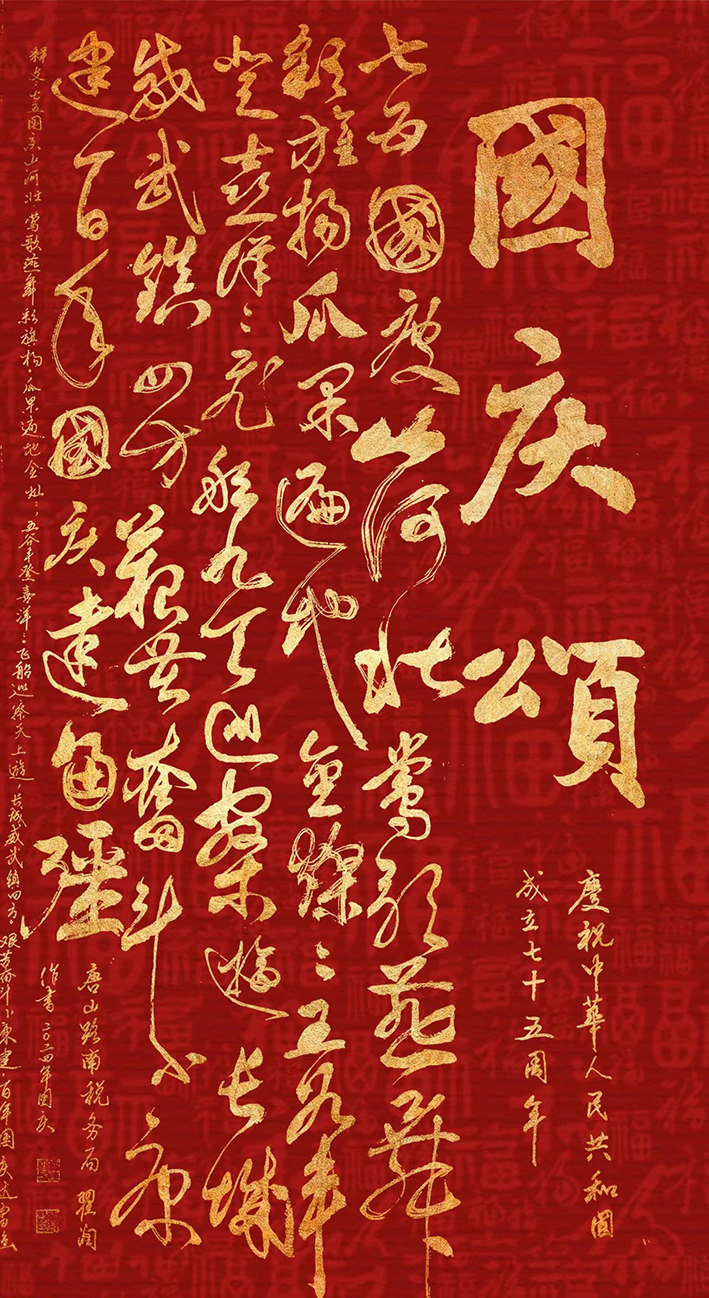 國庆頌
慶祝中華人民共和國
成立七十五周年
七五國庆山河壮莺歌燕舞
彩旗扬瓜果遍地金燦々五谷丰
登喜洋々飞船九天巡察遊长城
威武鎮四方艰苦奮斗小康
建百年國庆達富强
唐山路南税务局 翟
作書二〇二四年国庆
释文 七五国庆山河壮 莺歌燕舞彩旗扬 瓜果遍地金灿々 五谷丰登喜洋々 飞船巡察天上遊 长城威武镇四方 艰苦奋斗小康建 百年国庆达富强